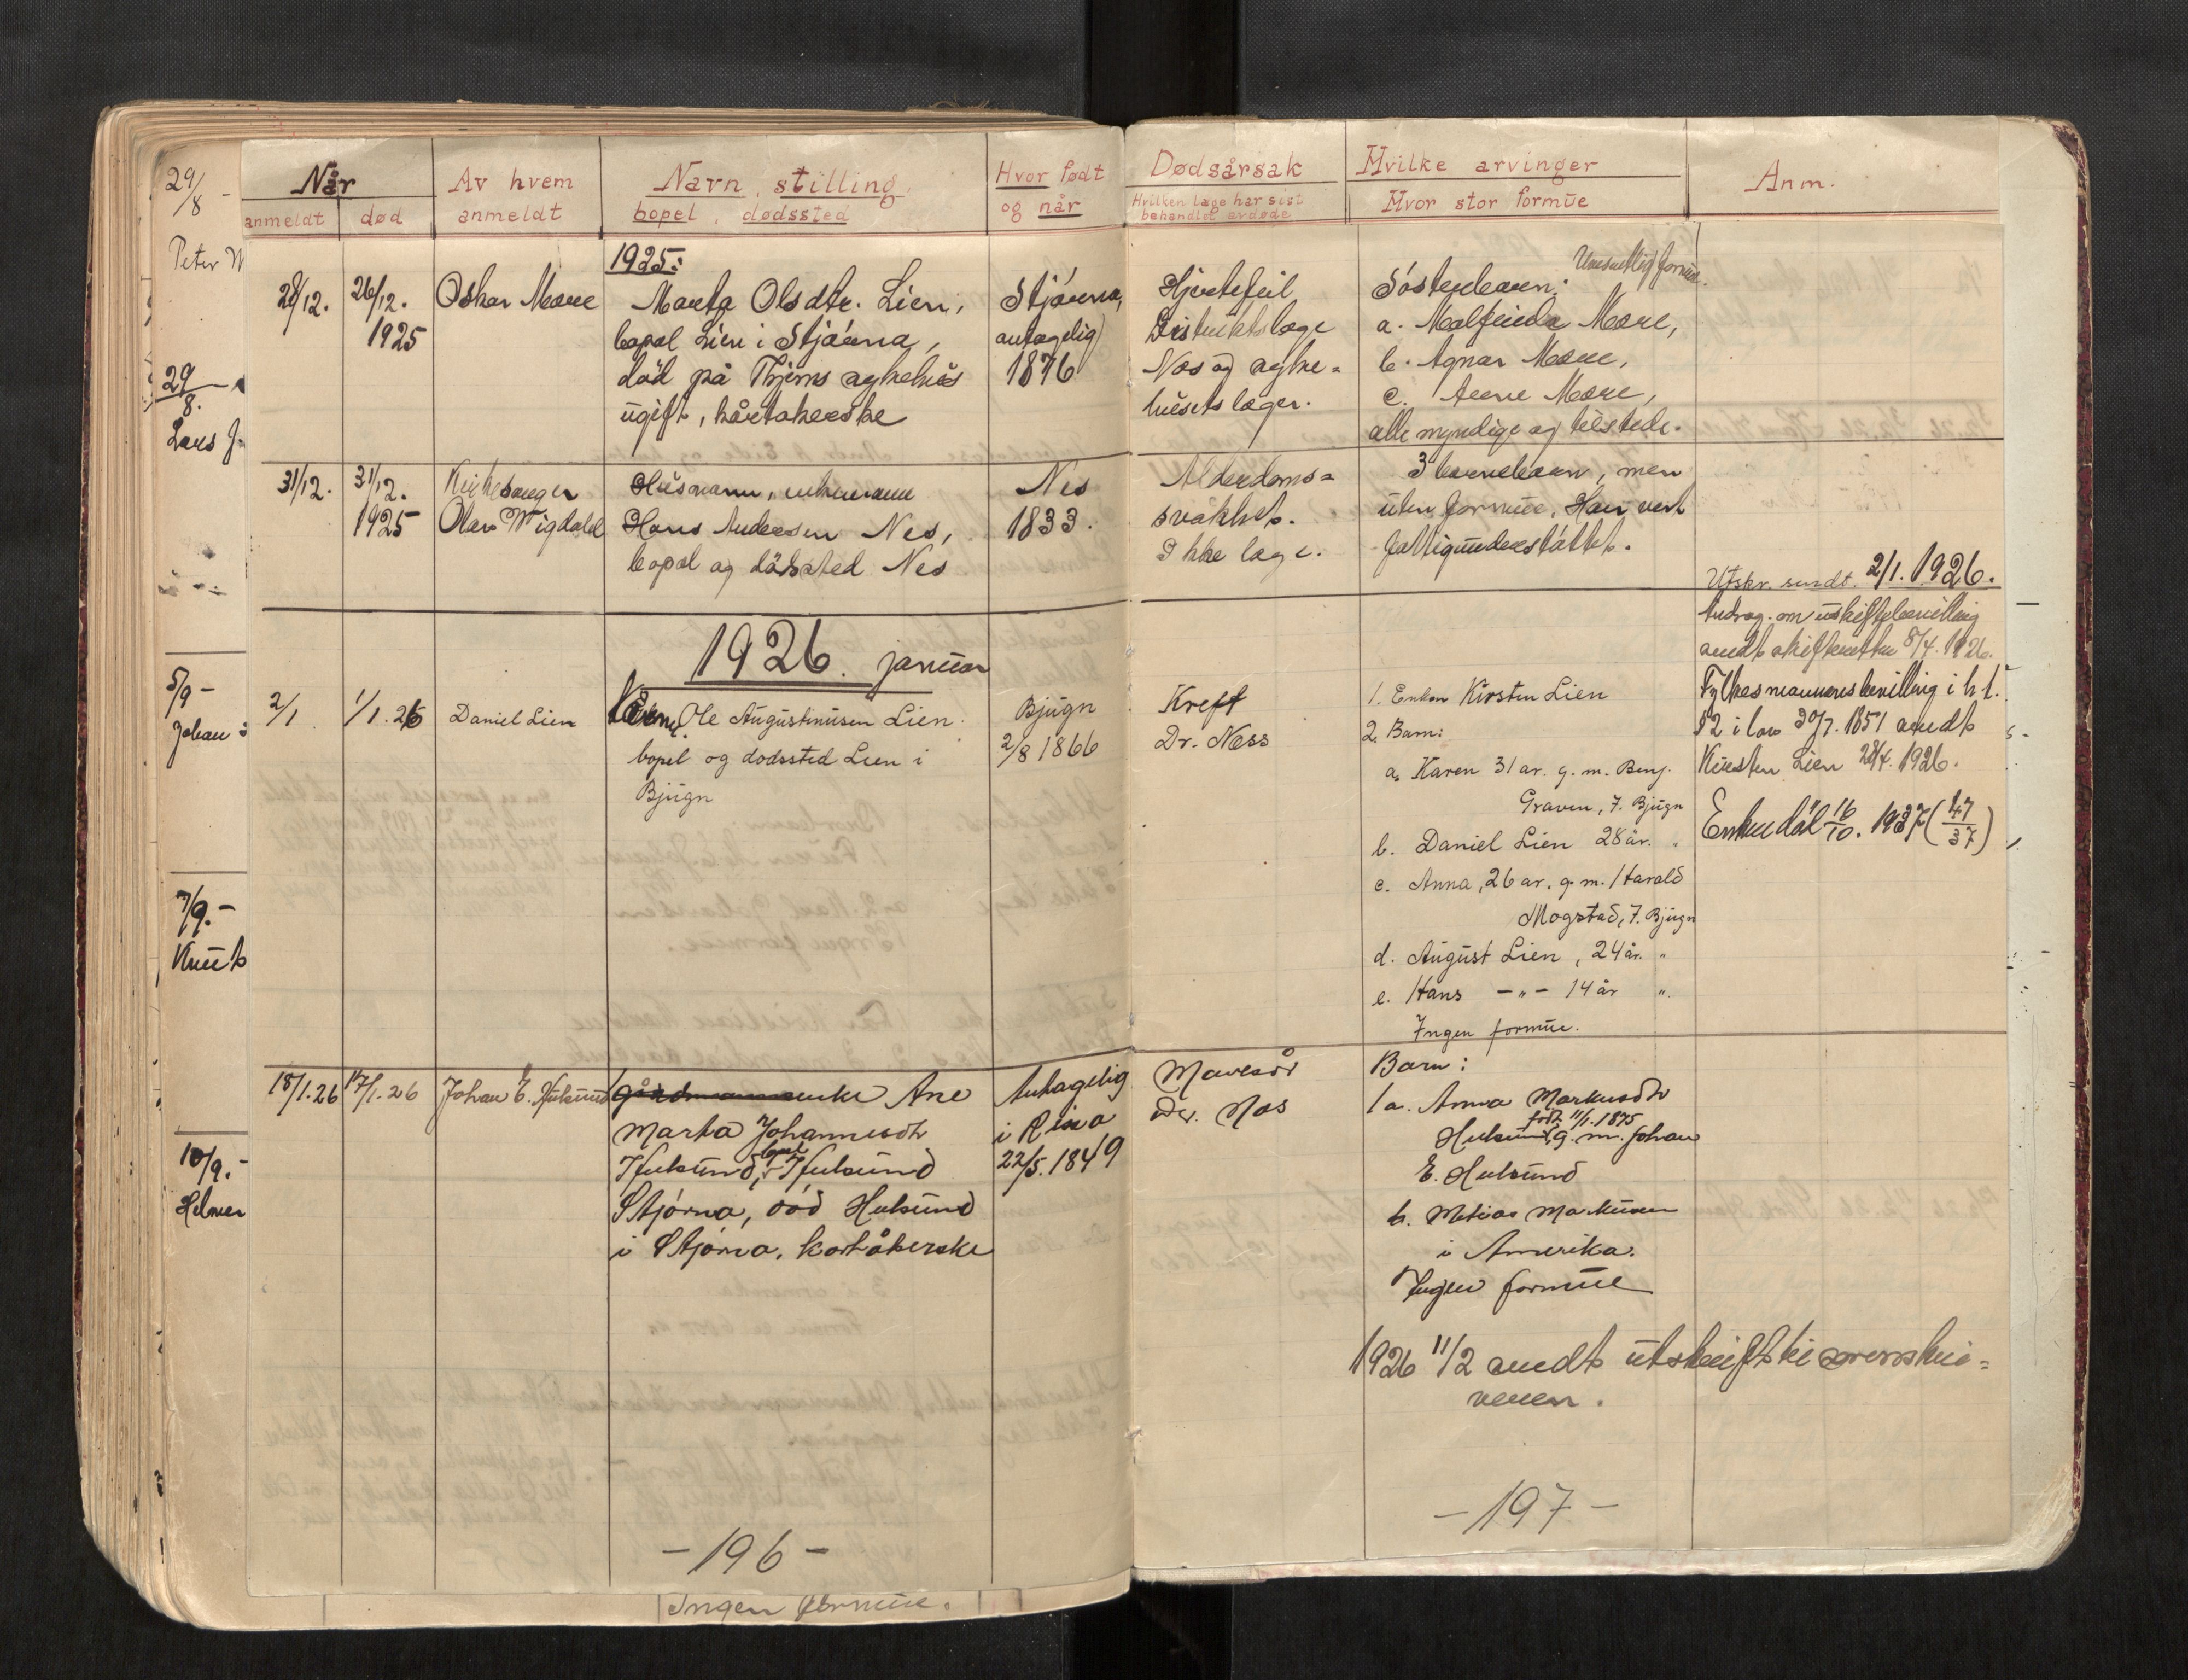 29/8 -
Peter
29/8.
Lars
5/9 -
Johan
7/9. -
Knut
10/9. -
Helmer
Når
anmeldt død
Av hvem
anmeldt
Navn, stilling
bopel, dødssted
Hvor født
og når
Dødsårsak
Hvilken læge har sist
behandlet avdøde
Hvilke arvinger
Hvor stor formue
Anm.
1925:
28/12. 26/12.
1925
Oskar Mære
Marta Olsdtr. Lien,
bopel Lien i Stjørna,
død på Thjems sykehus
ugift, kårtakerske
Stjørna,
antagelig
1876
Hjertefeil
Distriktslæge
Næs og syke=
husets læger.
Uvesentlig formue.
Søsterbarn:
a. Malfinda Mære,
b. Agnar Mære,
c. Arne Mære,
alle myndige og tilstede.
31/12. 31/12.
1925
Kirkesanger
Olav Wigdahl
Husmann, enkemann
Hans Andersen Nes,
bopel og dødssted Nes
Nes
1833.
Alderdoms=
svakhet.
Ikke læge.
3 barnebarn, men
uten formue. Han vert
fattigunderstøttet.
1926. januar
2/1. 1/1.26
Daniel Lien
Ole Augustinusen Lien.
bopel og dødssted Lien i
Bjugn
Bjugn
2/8 1866
Kreft
Dr. Næss
1. Enken Kirsten Lien
2. Barn:
a. Karen 31 år. g. m. Benj.
Graven, i. Bjugn
b. Daniel Lien 28 år. "
c. Anna, 26 år. g. m. Harald
Mogstad, i. Bjugn
d. August Lien, 24 år. "
e. Hans - " - 14 år ".
Ingen formue.
Utskr. sendt. 2/1. 1926.
Andrag. om uskiftebevilling
sendt skifteretten 8/4. 1926.
Fylkesmannens bevilling i h.t.
§2 i lov 30/7. 1851 sendt
Kirsten Lien 28/4. 1926.
Enken død 16/10. 1937 (47/37)
18/1.26 17/1.26
Johan E. Hulsund
gårdmannsenke Ane
Marta Johannesdtr
Hulsund, bopel Hulsund
Stjørna, død Hulsund
i Stjørna, kårtåkerske
Antagelig
i Rissa
22/5. 1849
Mavesår
Dr. Næs
Barn:
1 a. Anna Markusdtr
født 11/1. 1875
Hulsund, g. m. Johan
E. Hulsund
b. Metias Markusen
i Amerika.
Ingen formue
1926 11/2 sendt utskrift til sorenskri=
veren.
- 196 -
- 197 -
Ingen formue.